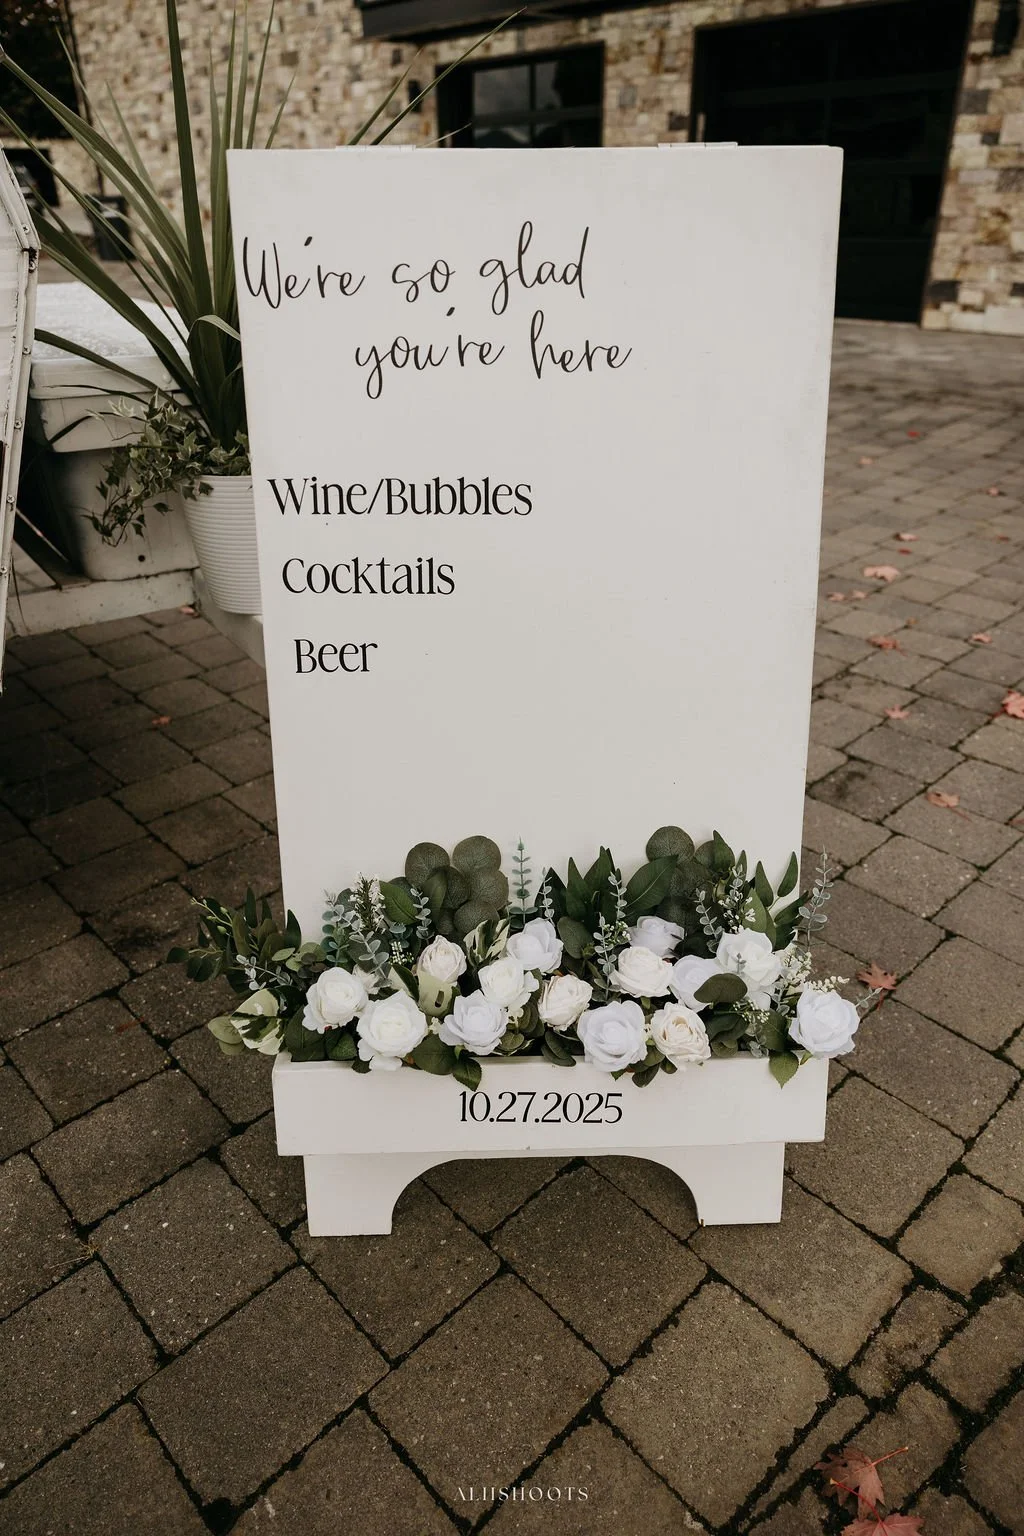 We're so glad
you're here
Wine/Bubbles
Cocktails
Beer
10.27.2025
ALIISHOOTS